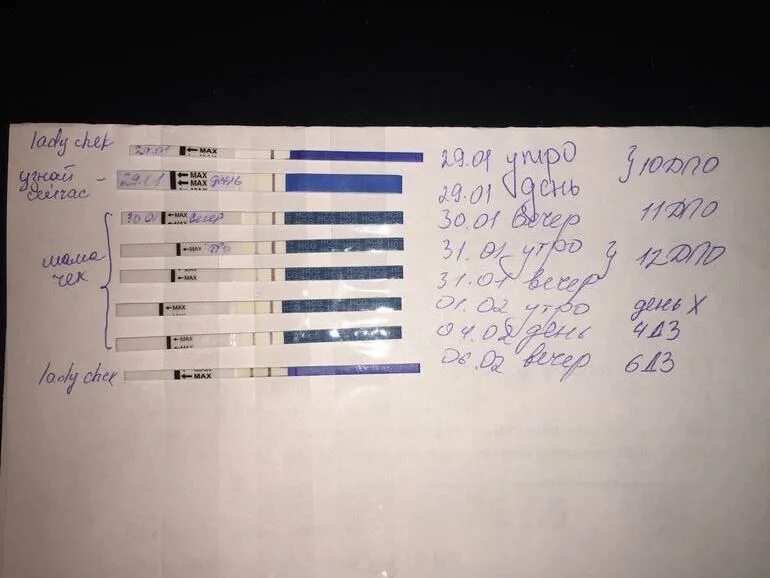 lady chek 29.01 MAX 29.01 утро } 10 ДПО
узнай сейчас - 29.01 MAX MAX MAX день 29.01 день
30.01 MAX вечер HCG HCG HCG HCG 30.01 вечер 11 ДПО
мама чек MAX утро 31.01 утро } 12 ДПО
MAX 31.01 вечер
MAX 01.02 утро день X
MAX 04.02 день 4ДЗ
lady chek MAX 06.02 вечер 6ДЗ